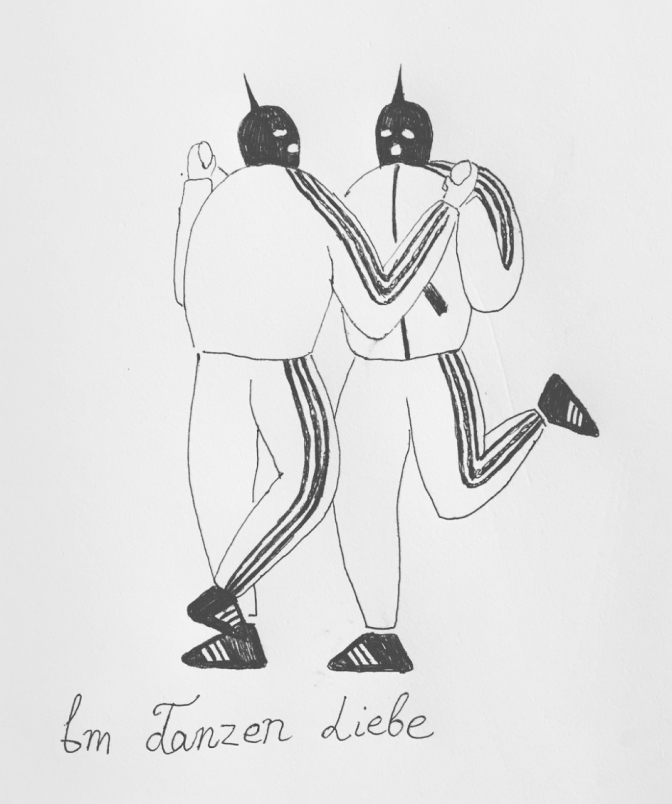 Im Tanzen Liebe